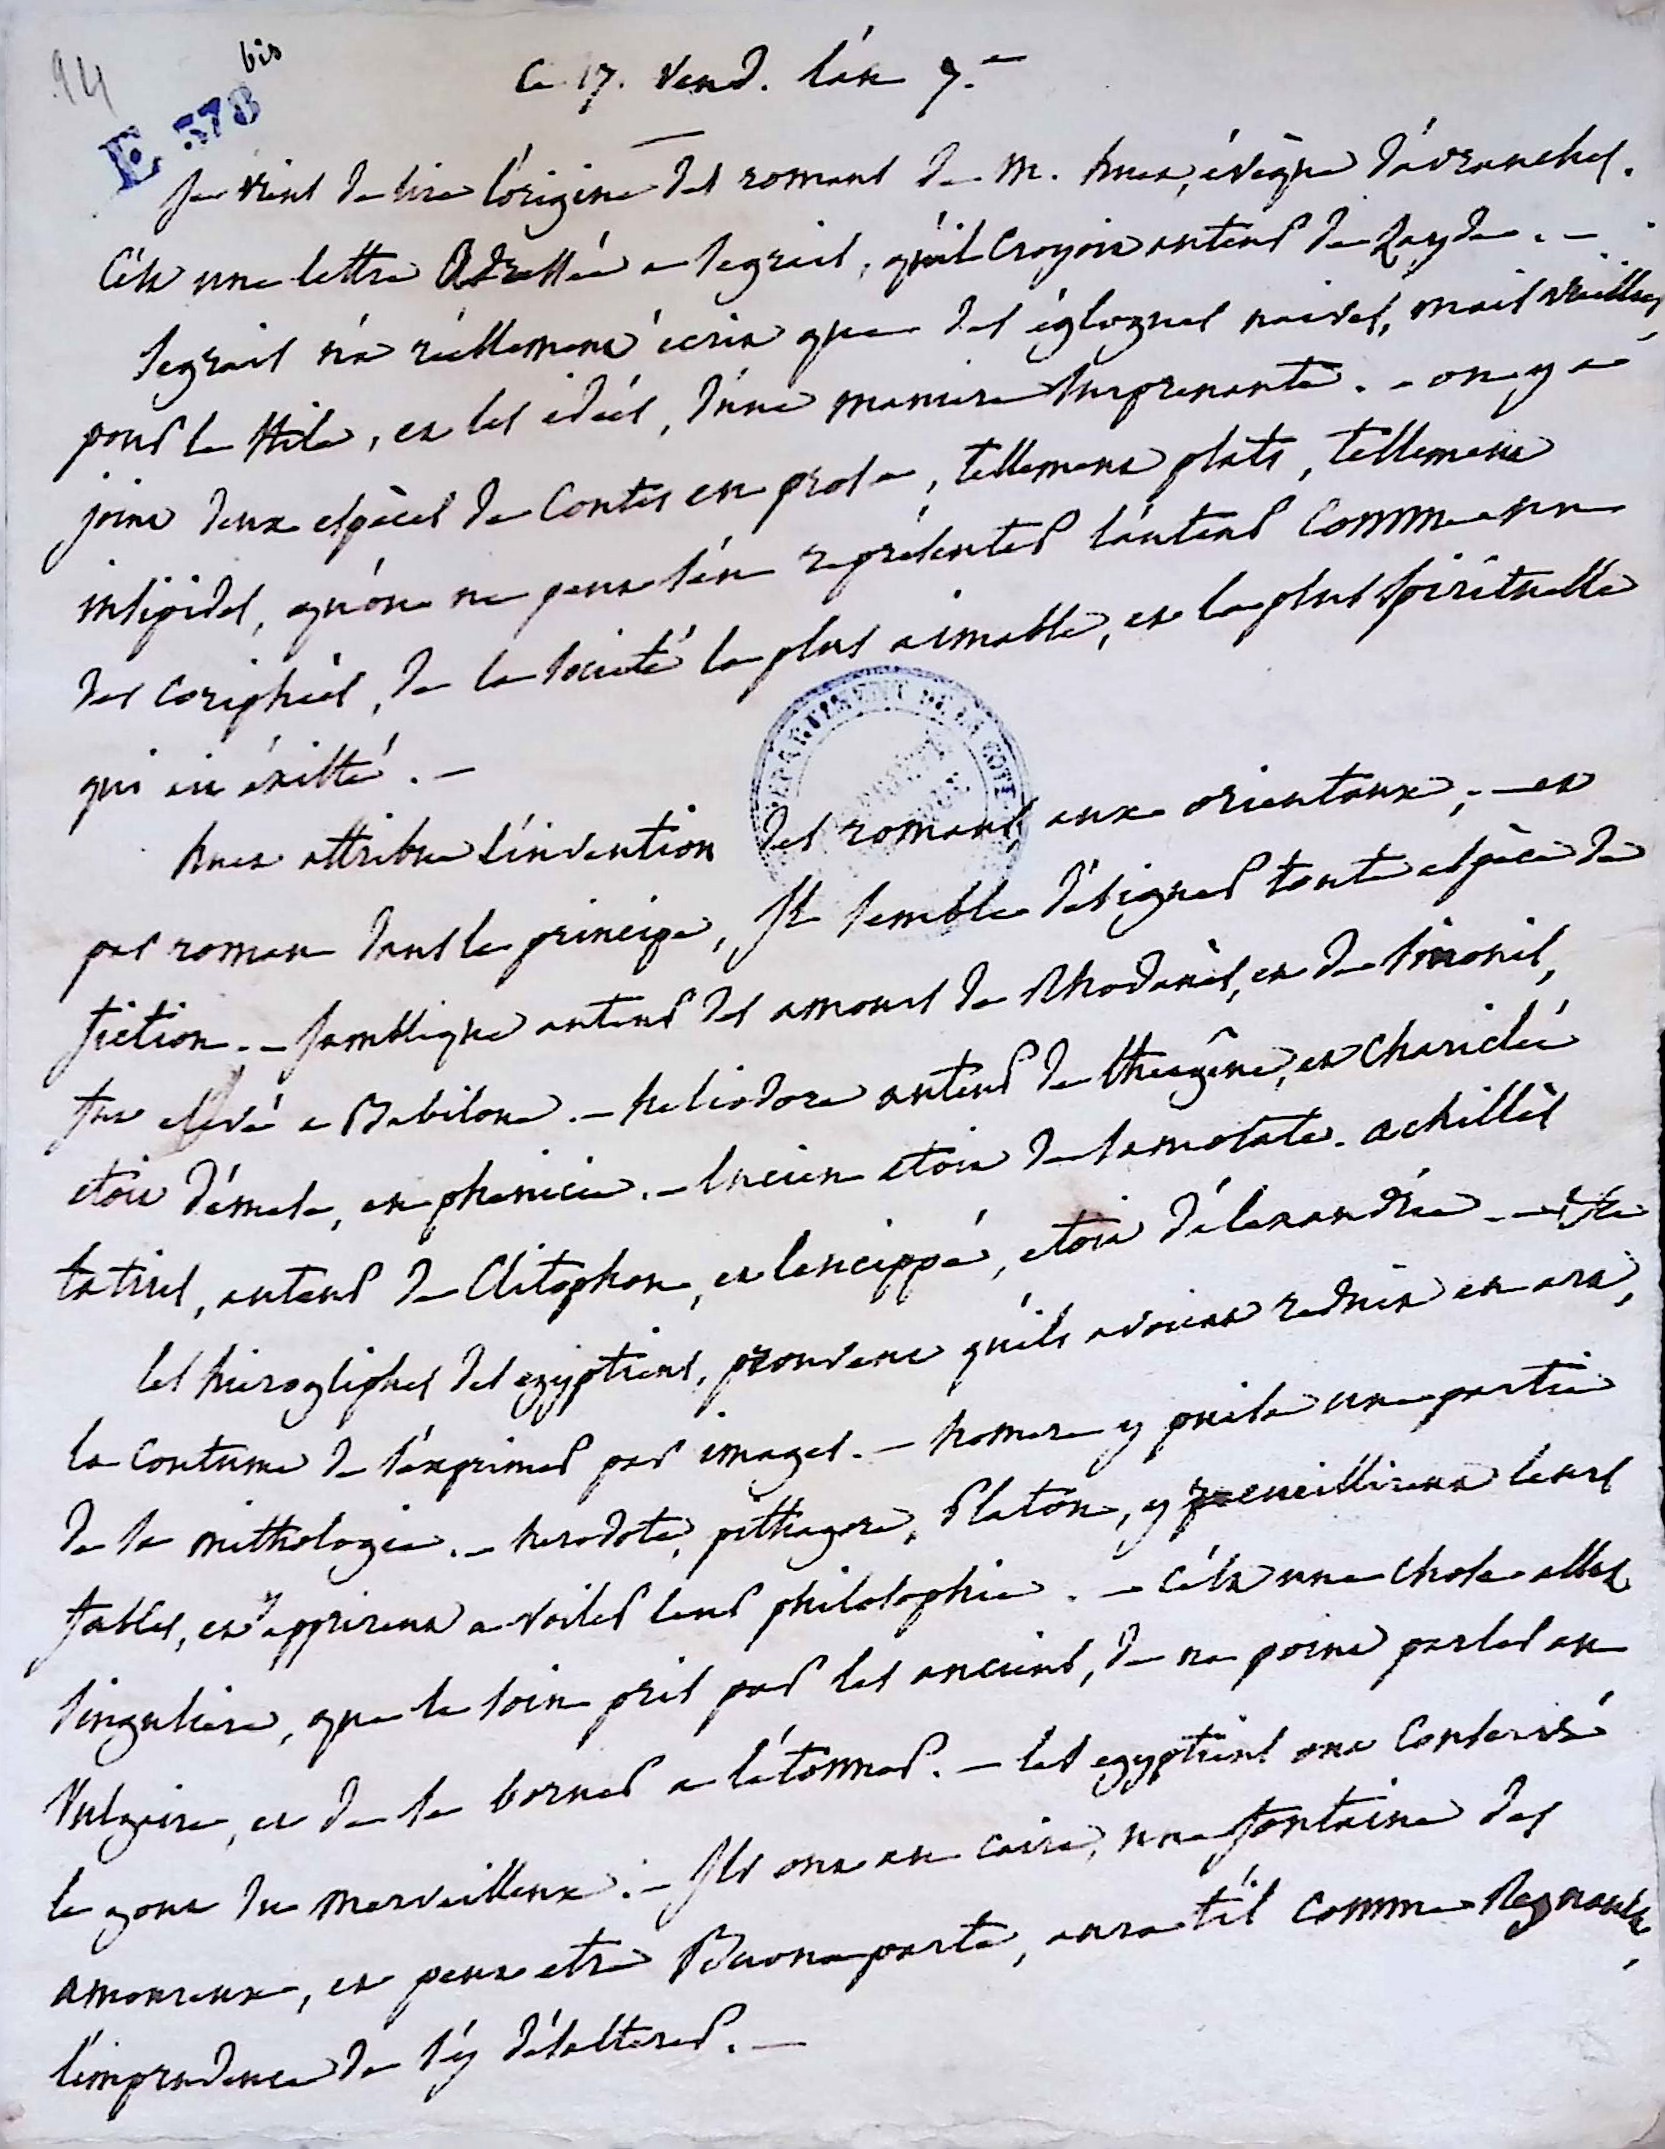 94
E 378 bis
Ce 17. Vend. l'an 7.e
Je viens de lire l'origine des romans de M. huet, évêque d'avranches.
C'est une lettre Adressée a Segrais, qu'il Croyoit auteur de Zayde. -
Segrais n'a réellement écrit que des églogues naives, mais vieillies
pour le stile, et les idées, d'une maniere surprenante. - on y a
joint deux espèces de Contes en prose, tellement plats, tellement
insipides, qu'on ne peut s'en représenter l'auteur Comme un
des coriphées, de la société la plus aimable, et la plus spirituelle
qui ait éxisté. -
DEPARTEMENT DE LA COTE
huet attribue l'invention des romans, aux orientaux ; - et
par roman dans le principe, Il semble désigner toute espèce de
fiction. - Jamblique auteur des amours de Rhodanès, et de Sinonis,
fut elevé a Babilone. - heliodore auteur de theagène, et Chariclée
etoit d'émese, en phenicie. - lucien etoit de Samosate. achillès
tatius, auteur de Clitophon, et leucippé, etoit d'alexandrie. -
les hierogliphes des egyptiens, prouvent qu'ils avoient reduit en art,
la coutume de s'exprimer par images. - homere y puisa une partie
de sa mithologie. - herodote, pithagore, Platon, y recueillirent leurs
fables, et y apprirent a voiler leur philosophie. - C'est une chose assez
singuliere, que le soin pris par les anciens, de ne point parler au
Vulgaire, et de se borner a l'étonner. - les egyptiens ont Conservé
le gout du merveilleux. - Ils ont au caire, une fontaine des
amoureux, et peut etre Buonaparte, aura t'il comme Regnault,
l'imprudence de s'y désalterer. -